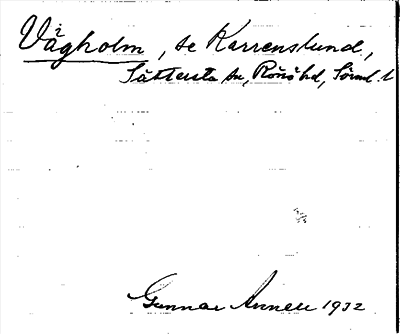 Vågholm, se Karrenslund,
Sättersta sn, Rönö hd, Söml. l.
Gunnar Annell 1932